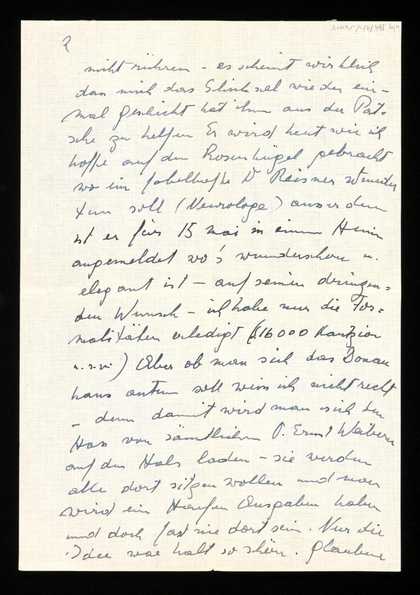 2
nicht rühren – es scheint wirklich
das mich das Schicksal wieder ein-
mal geschickt hat ihm aus der Pat-
sche zu helfen Er wird heut wie ich
hoffe auf den Rosenhügel gebracht
wo ein fabelhafter Dr Reisner
tun soll (Neurologe) ausserdem
ist er für 15 mai in einem Heim
angemeldet wo's wunderschön u.
elegant ist – auf seinen dringen-
den Wunsch – ich habe nur die For-
malitäten erledigt (S16000 Kaution
u.s.w.) Aber ob man sich das Donau
haus antun soll weiss ich nicht recht
– denn damit wird man sich den
Hass von sämtlichen P. Ernst Weibern
auf den Hals laden – sie werden
alle dort sitzen wollen und man
wird ein Haufen Ausgaben haben
und doch fast nie dort sein. Nur die
Idee war halt so schön. Glaubene